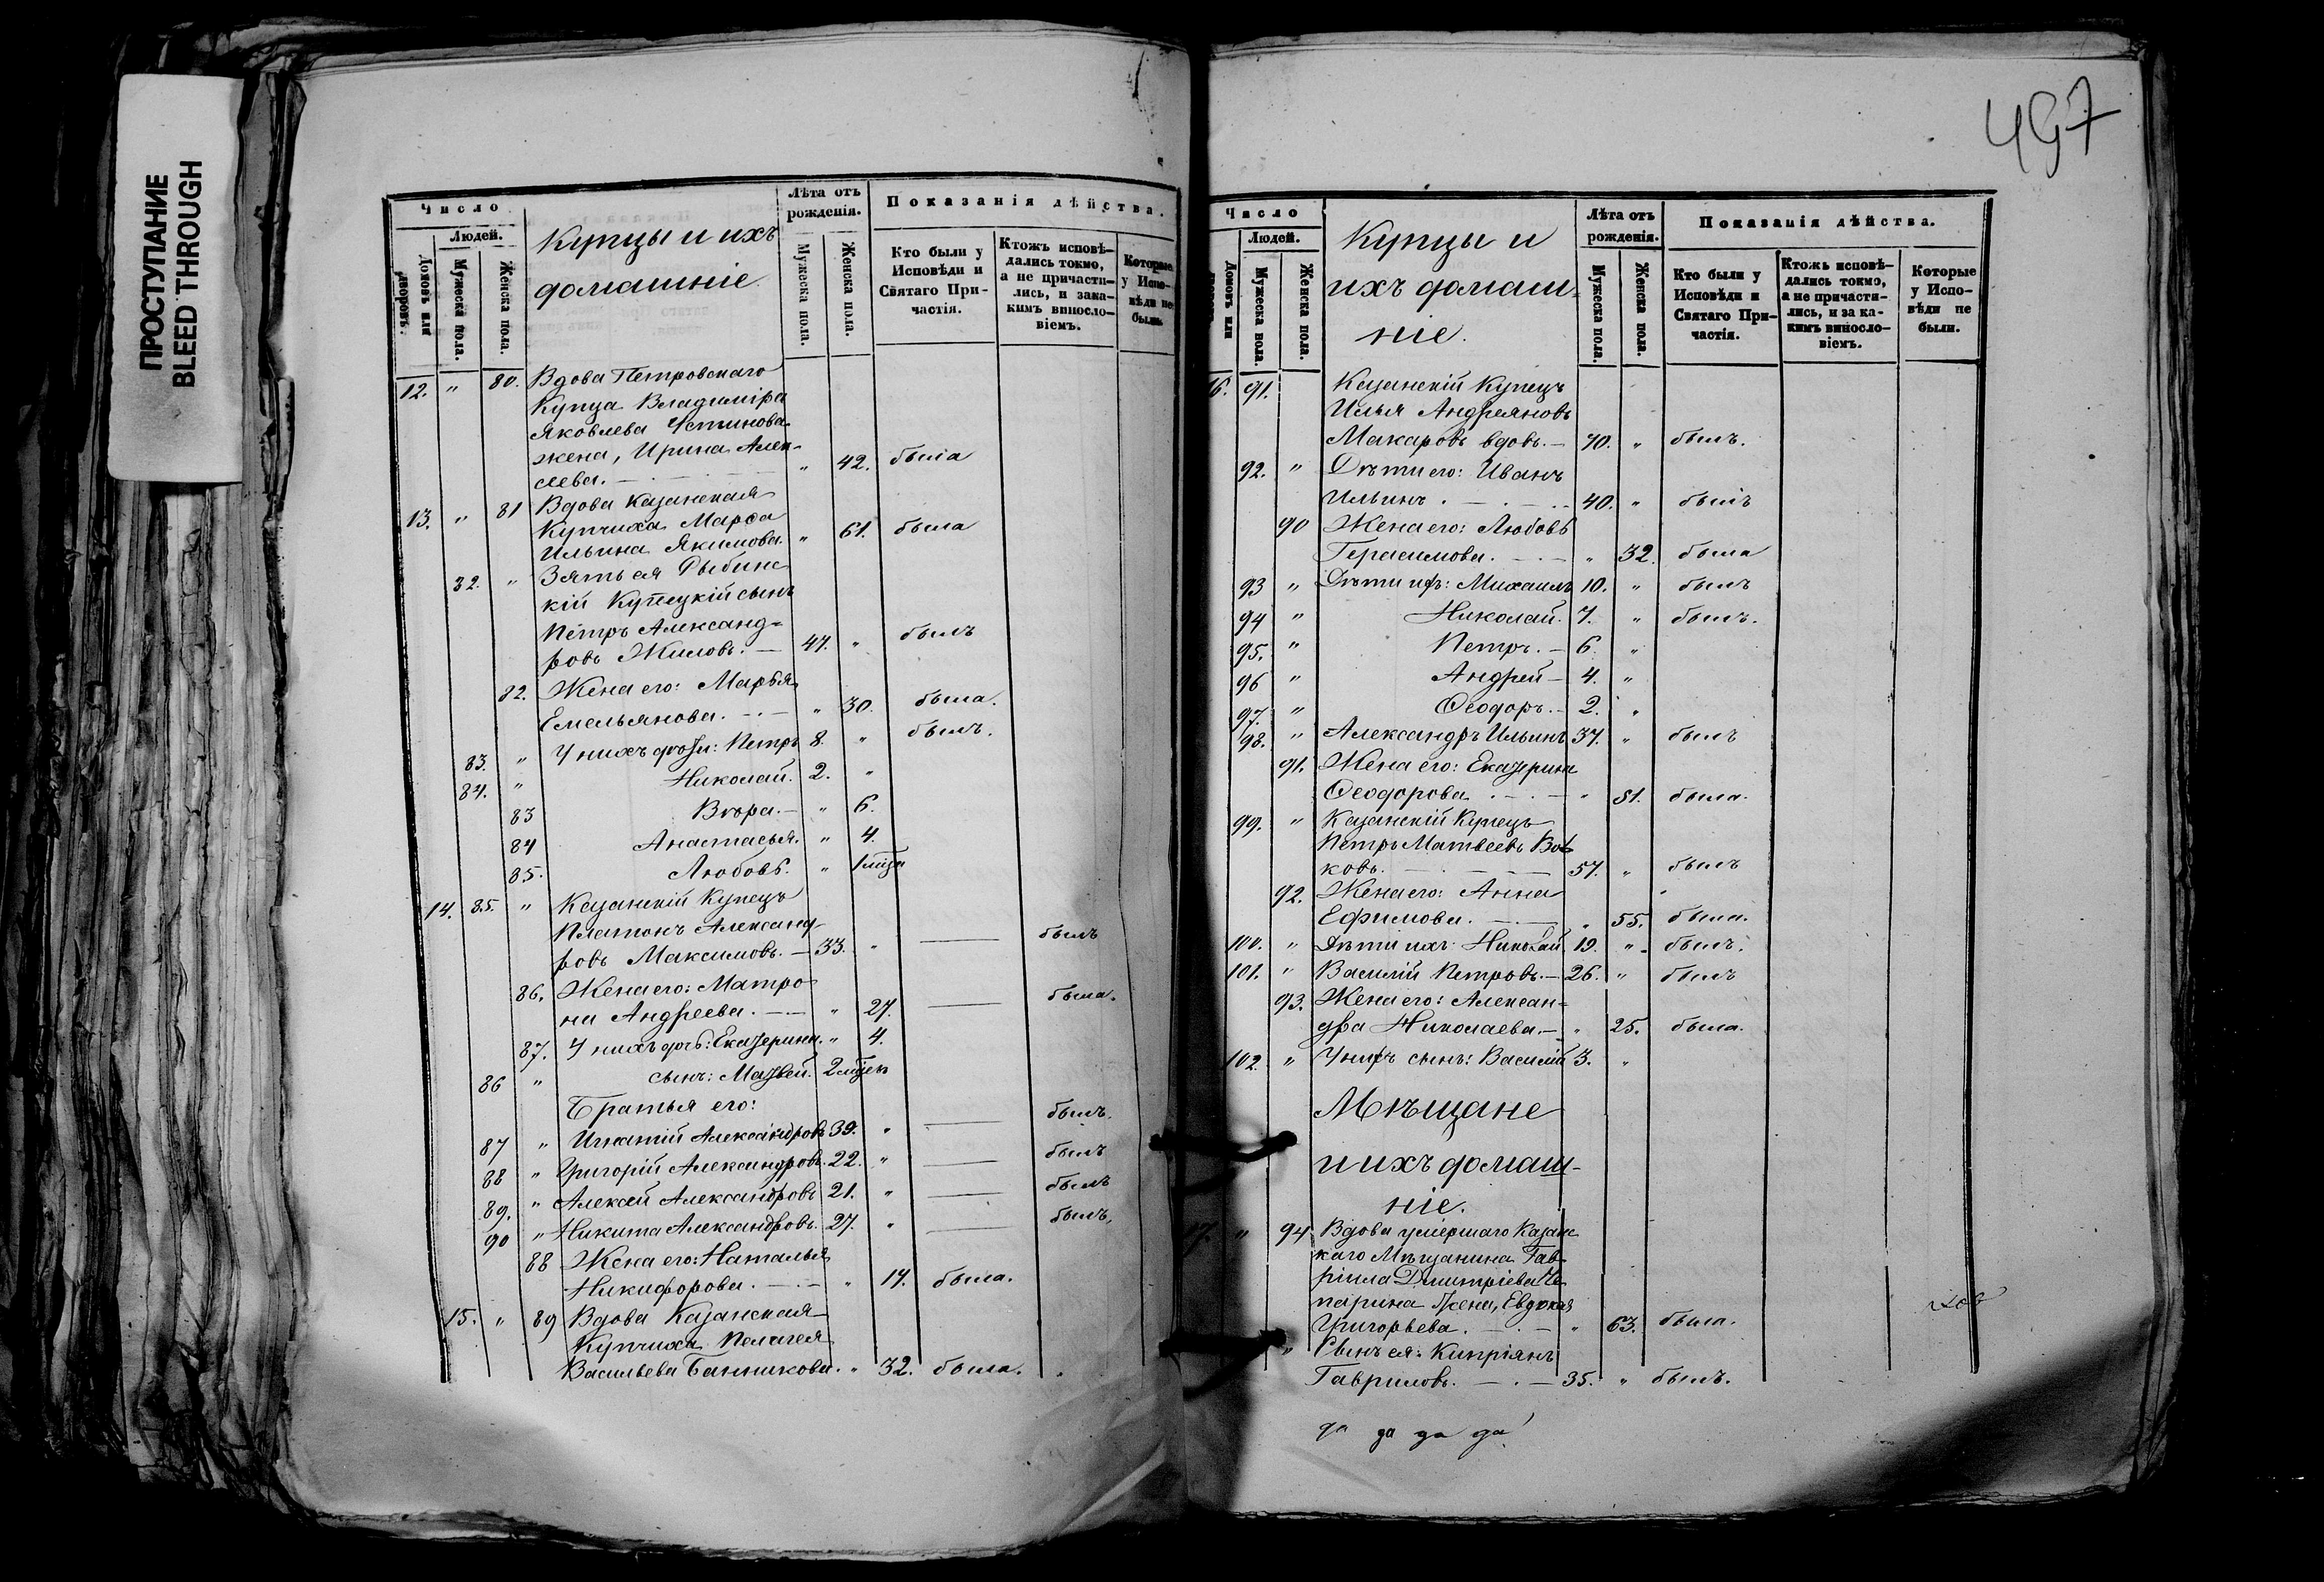 ПРОСТУПАНИЕ
BLEED THROUGH
Число
Людей.
Домовъ или дворовъ.
Мужеска пола.
Женска пола.
Купцы и ихъ
домашніе.
Лѣта отъ
рожденія.
Мужеска пола.
Женска пола.
Показанія дѣйства.
Кто были у
Исповѣди и
Святаго При-
частія.
Ктожъ исповѣ-
дались токмо,
а не причасти-
лись, и зака-
кимъ виносло-
віемъ.
Которые
у Испо-
вѣди не
были.
12. " 80. Вдова Петровскаго
Купца Владиміра
Яковлева Устинова
жена, Ирина Алек-
сеева. " 42. была
13. " 81 Вдова Казанская
Купчиха Марѳа
Ильина Якимова. " 61. была
82. " Зять ея Рыбинс
кій Купецкій сынъ
Петръ Александ-
ровъ Жиловъ. — 47. " былъ
82. Жена его: Марья
Емельянова. " 30. была.
83. " У нихъ дѣти: Петръ 8. " былъ.
84. " Николай. 2. "
83 Вѣра. — " 6.
84 Анастасья. " 4.
85. Любовь. " 1
14. 85. " Казанскій Купецъ
Платонъ Александ-
ровъ Максимовъ. — 33. " — былъ
86. Жена его: Матро
на Андреева. " 27. — была.
87. У нихъ дочь: Екатерина. " 4.
86 " сынъ: Матвей. 2
Братья его:
87 " Игнатій Александровъ 39. " — былъ.
88 " Григорій Александровъ. 22. " — былъ
89. " Алексѣй Александровъ 21. " — былъ
90 " Никита Александровъ. 27. " — былъ,
88 Жена его: Наталья
Никифорова. " 17. была.
15. " 89 Вдова Казанская
Купчиха Пелагея
Васильева Банникова. " 32. была.
497
Число
Людей.
Домовъ или
Мужеска пола.
Женска пола.
Купцы и
ихъ домаш-
ніе.
Лѣта отъ
рожденія.
Мужеска пола.
Женска пола.
Показанія дѣйства.
Кто были у
Исповѣди и
Святаго При-
частія.
Ктожь исповѣ-
дались токмо,
а не причасти-
лись, и за ка-
кимъ виносло-
віемъ.
Которые
у Испо-
вѣди не
были.
16. 91. Казанскій Купецъ
Илья Андреяновъ
Макаровъ вдовъ. — 70. " былъ.
92. " Дѣти его: Иванъ
Ильинъ. 40. " былъ
90 Жена его: Любовь
Герасимова. " 32. была
93 " Дѣти ихъ: Михаилъ 10. " былъ
94 " Николай. 7. " былъ.
95. " Петръ. — 6. "
96 " Андрей — 4. "
97. " Ѳеодоръ. — 2. "
98. " Александръ Ильинъ 37. " былъ
91. Жена его: Екатерина
Ѳеодорова " 31. была.
99. " Казанскій Купецъ
Петръ Матвеевъ Вол
ковъ. 57. " былъ
92. Жена его: Анна
Ефимова. " 55. была.
100. " Дѣти ихъ: Николай. 19. " былъ.
101. " Василій Петровъ. — 26. " былъ
93. Жена его: Алексан-
дра Николаева. — " 25. была.
102. " У нихъ сынъ: Василій 3. "
Мѣщане
и ихъ домаш-
ніе.
" 94 Вдова умершаго Казанс
каго Мѣщанина Гав-
ріила Дмитріева Че
парина жена, Евдокія
Григорьева. " 63. была.
" Сынъ ея: Кипріянъ
Гавриловъ. — 35. " былъ.
да да да да